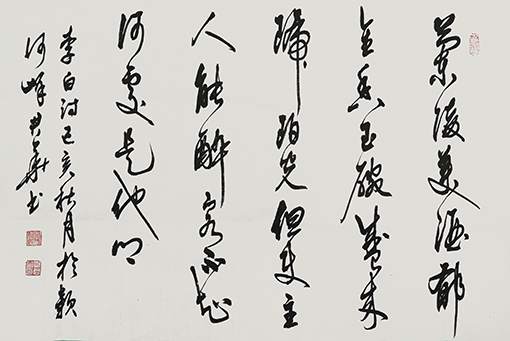 蘭陵美酒郁
金香玉碗盛来
琥珀光但使主
人能醉客不知
何處是他乡
李白诗己亥秋月於颍
河畔華书